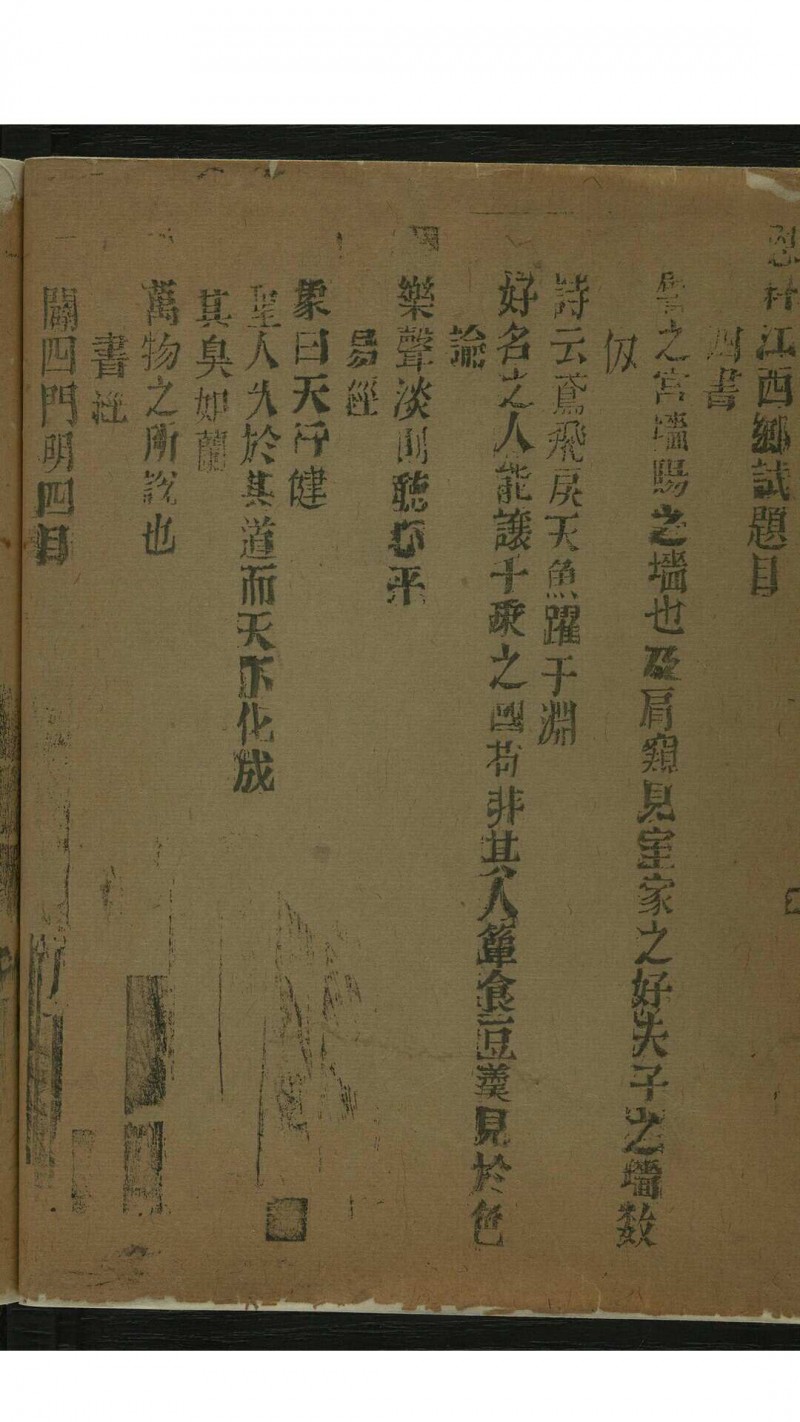 恩科江西鄉試題目
四書
譬之宮墻賜之墻也及肩窺見室家之好夫子之墻数
仞
詩云鳶飛戾天魚躍于淵
好名之人能讓千乘之國苟非其人簞食豆羹見於色
論
樂聲淡則聽心平
易經
象曰天行健
聖人久於其道而天下化成
其臭如蘭
萬物之所説也
書經
闢四門明四目